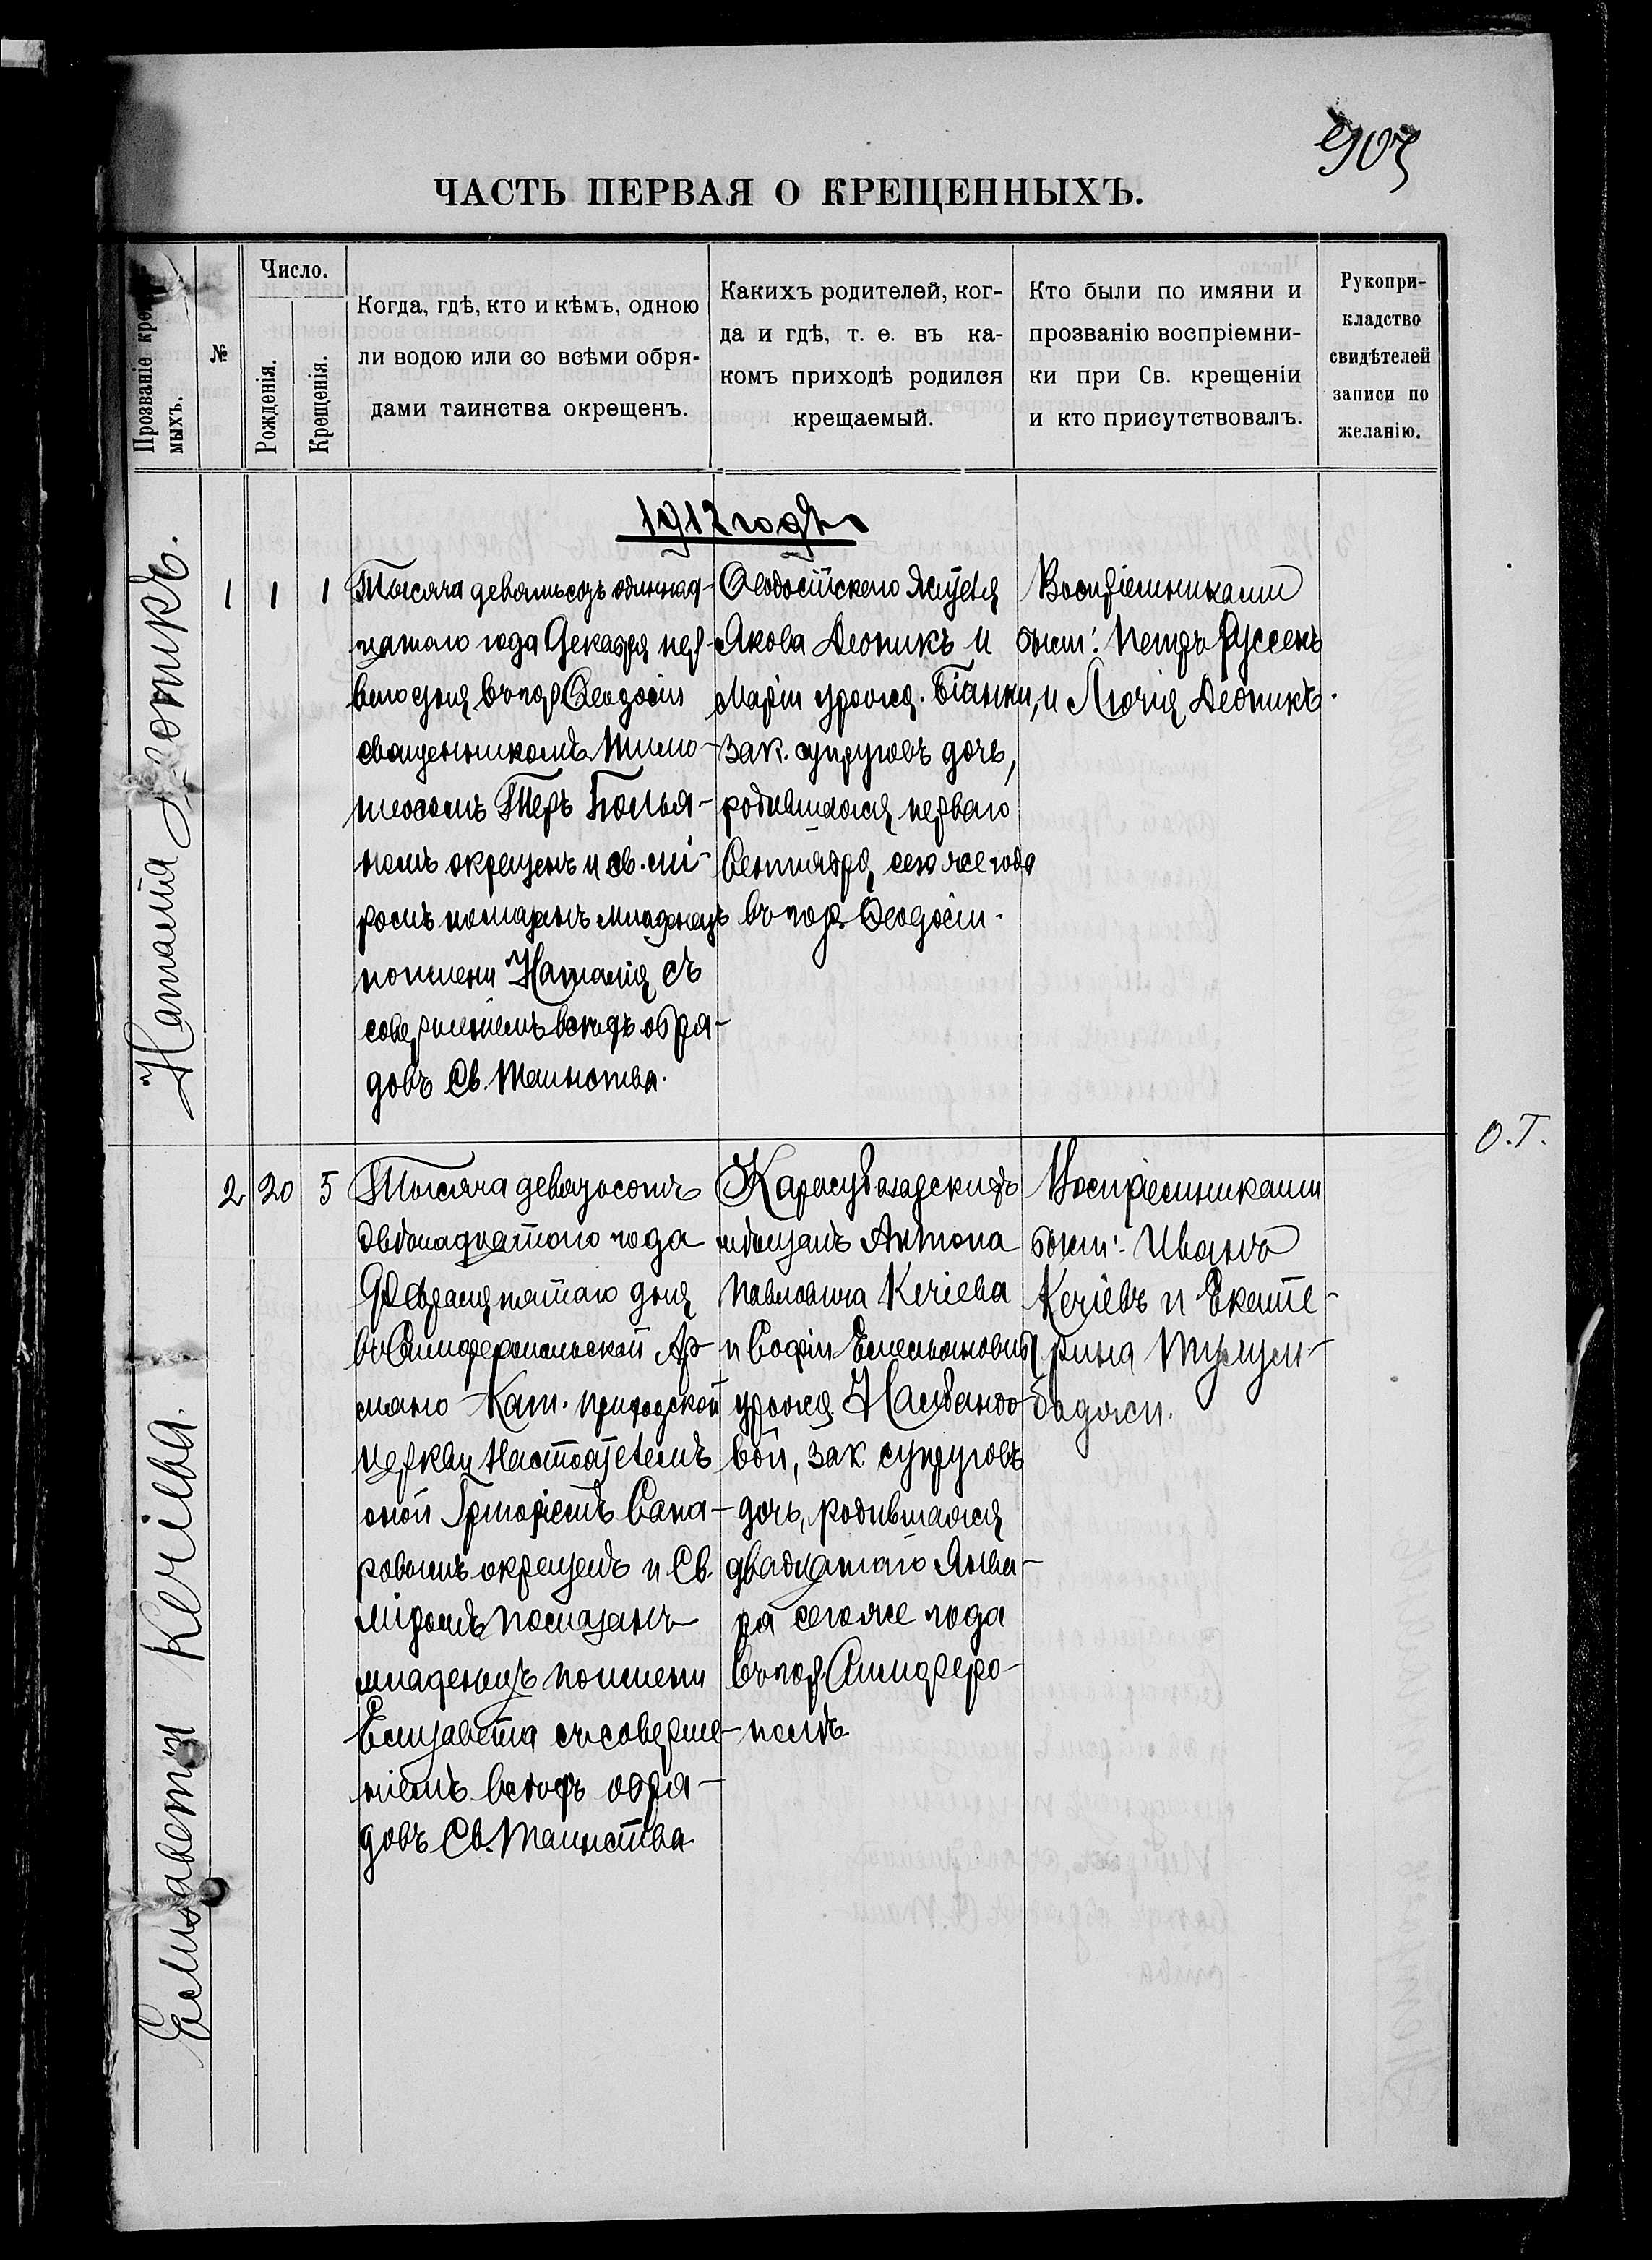 ЧАСТЬ ПЕРВАЯ О КРЕЩЕННЫХЪ.
Прозваніе кре
мыхъ.
№
Число.
Рожденія.
Крещенія.
Когда, гдѣ, кто и кѣмъ, одною
ли водою или со всѣми обря-
дами таинства окрещенъ.
Какихъ родителей, ког-
да и гдѣ, т. е. въ ка-
комъ приходѣ родился
крещаемый.
Кто были по имяни и
прозванію воспріемни-
ки при Св. крещеніи
и кто присутствовалъ.
Рукопри-
кладство
свидѣтелей
записи по
желанію.
1912 годъ
Наталія Деоникъ.
1
1
1
Тысяча девятьсотъ одиннад-
цатаго года Декабря пер-
ваго дня въ гор. Ѳеодосіи
священникомъ Тимо-
теосомъ Теръ
окрещенъ и св. мі-
ромъ помазанъ младенецъ
по имени Наталія съ
совершеніемъ всѣхъ обря-
довъ Св. Таинства.
Ѳеодосійскаго
Якова Деоникъ и
Маріи урожд. Біанки,
зак. супруговъ дочь,
родившаяся перваго
Сентября сего же года
въ гор. Ѳеодосіи.
Воспріемниками
были: Петръ Руссенъ
и Лючія Деоникъ.
Елизавета Кечіева.
2
20
5
Тысяча девятьсотъ
двѣнадцатаго года
Февраля пятаго дня
въ Симферопольской Ар-
мяно-Кат. приходской
церкви Настоятелемъ
оной Григоріемъ Сана-
ровымъ окрещенъ и Св.
міромъ помазанъ
младенецъ по имени
Елизавета съ соверше-
ніемъ всѣхъ обря-
довъ Св. Таинства
Карасубазарскихъ
мѣщанъ Антона
Павловича Кечіева
и Софіи Емельяновны
урожд. Налбандо-
вой, зак. супруговъ
дочь, родившаяся
двадцатаго Янва-
ря сего же года
въ гор. Симферо-
полѣ.
Воспріемниками
были: Иванъ
Кечіевъ и Екате-
рина Тулум-
баджи.
О.Т.